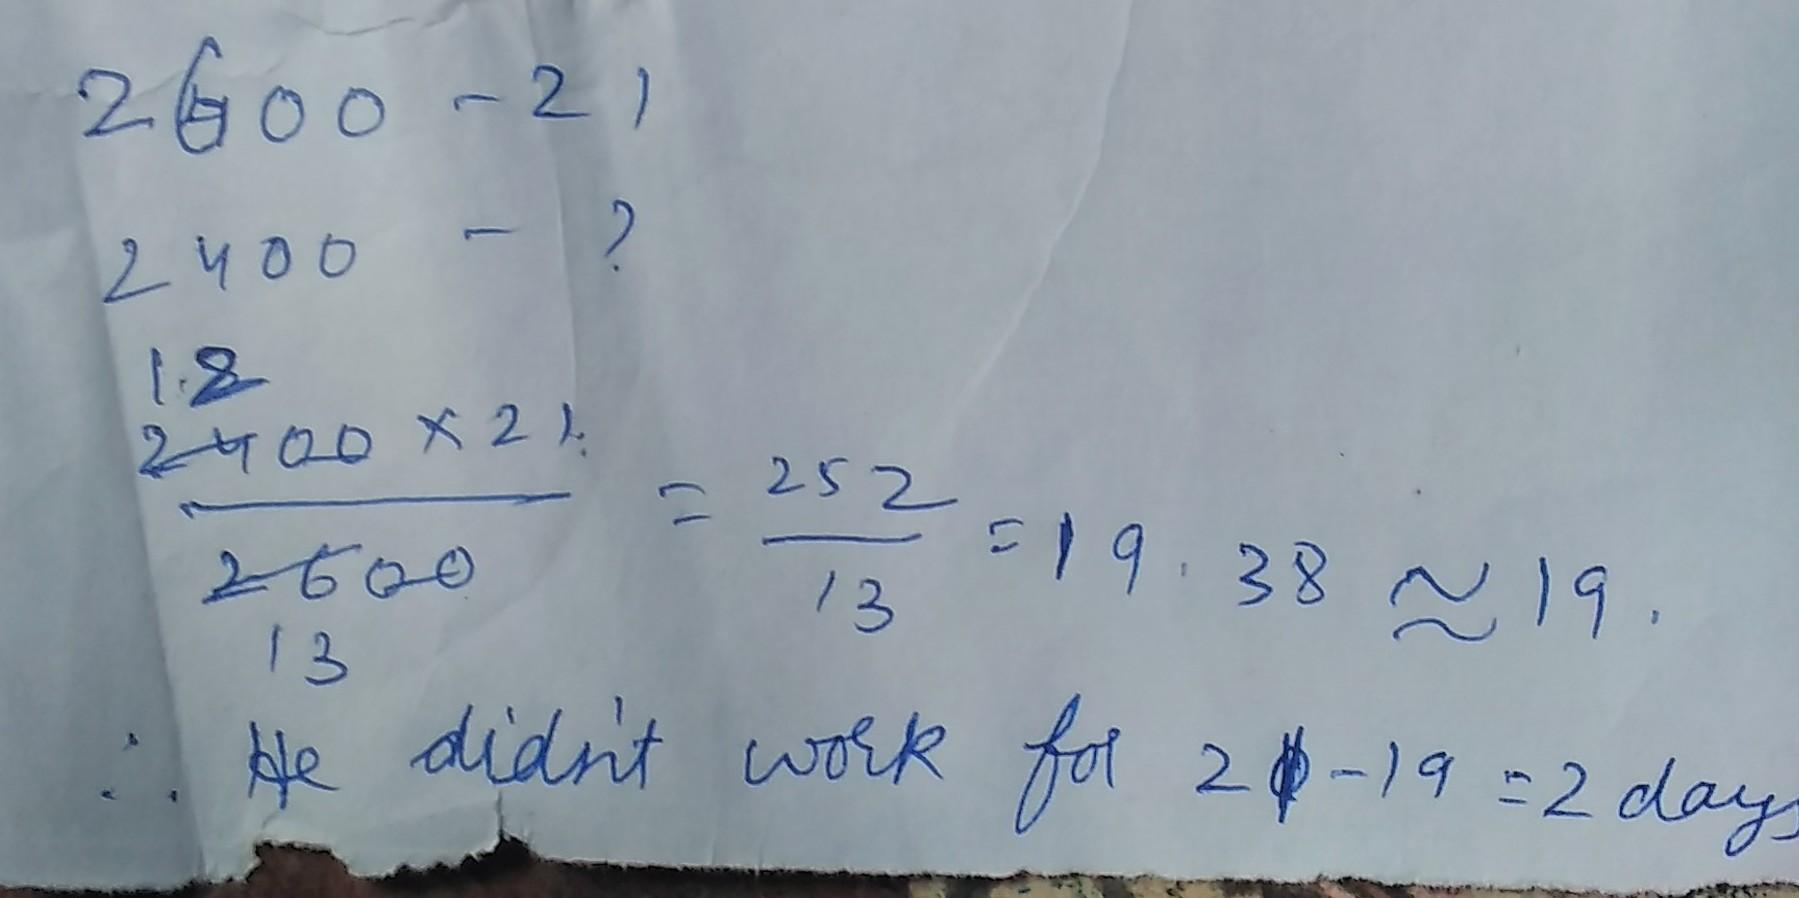 2600 - 21
2400 - ?
12
2400 × 21
2600
13
= 252
13
= 19.38 ≈ 19.
∴ He didn't work for 21 - 19 = 2 days